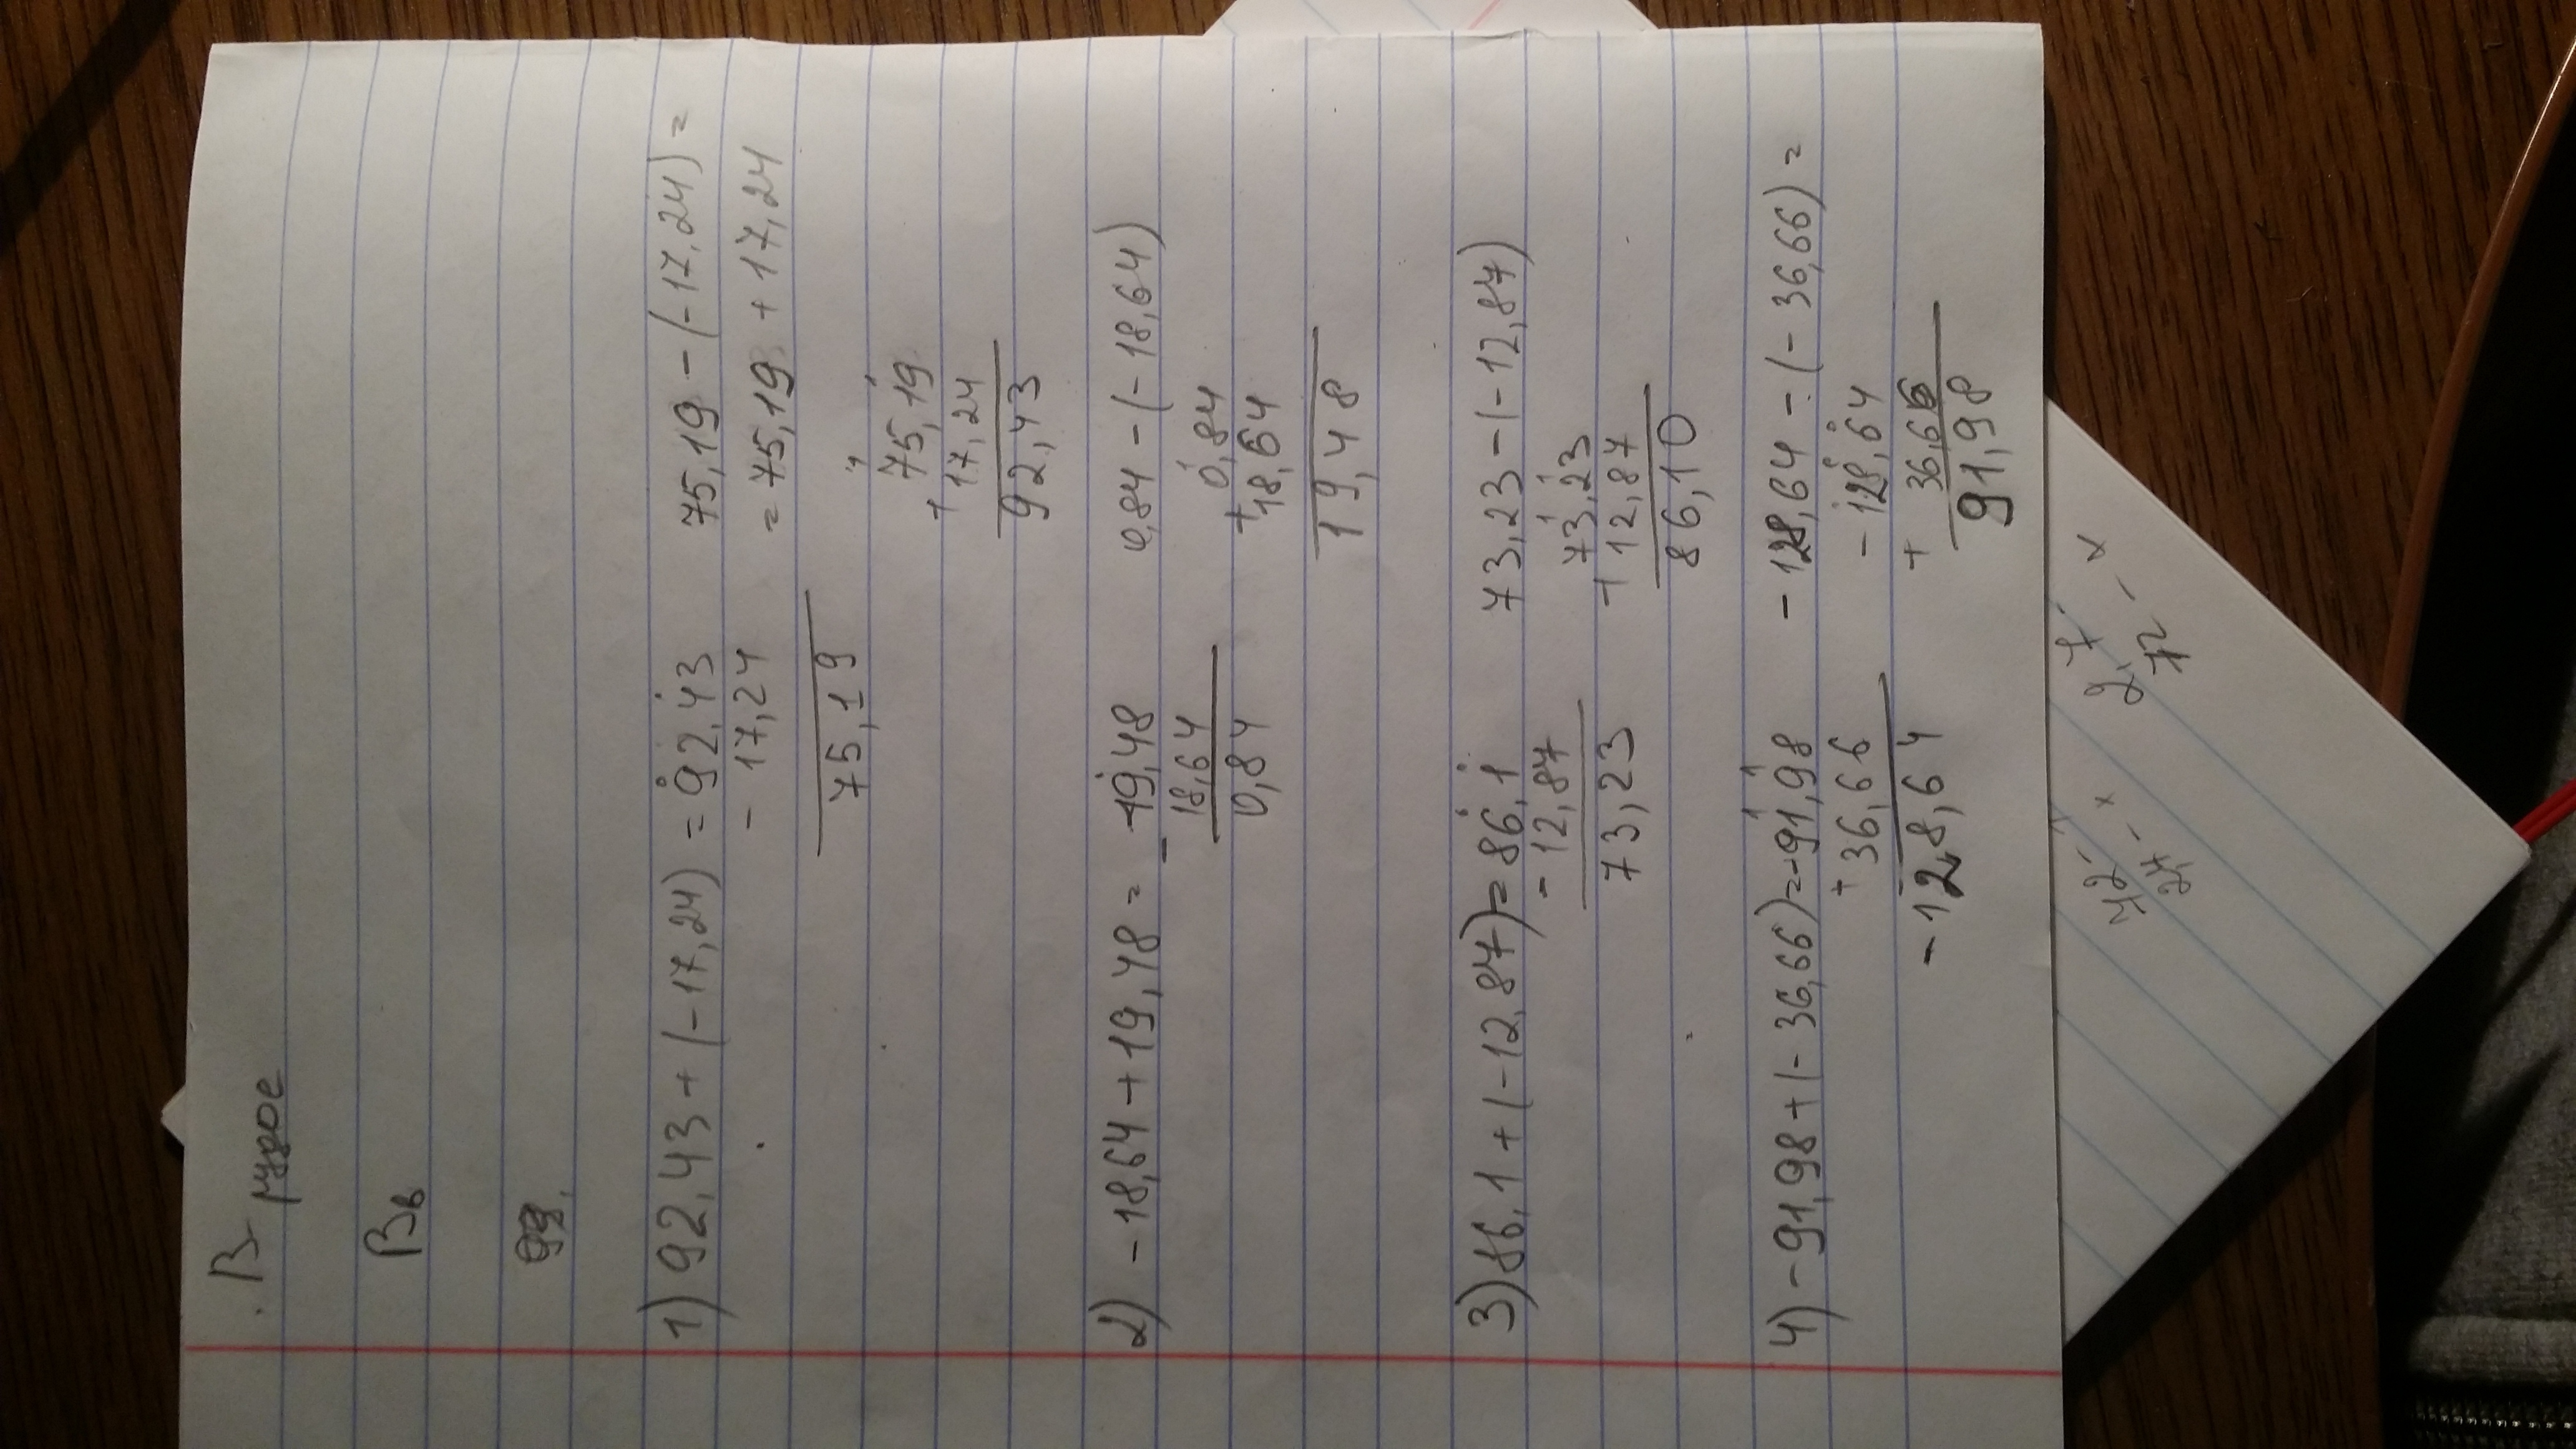 Вв
1) 92,43 + (-17,24) = 92,43 75,19 - (-17,24) =
- 17,24 = 75,19 + 17,24
75,19
75,19
+ 17,24
92,43
2) -18,64 + 19,48 = - 19,48 0,84 - (-18,64)
18,64 0,84
0,84 + 18,64
19,48
3) 86,1 + (-12,87) = 86,1 73,23 - (-12,87)
- 12,87 73,23
73,23 + 12,87
86,10
4) -91,98 + (-36,66) = -91,98 -128,64 - (-36,66) =
+ 36,66 -128,64
-128,64 + 36,66
91,98